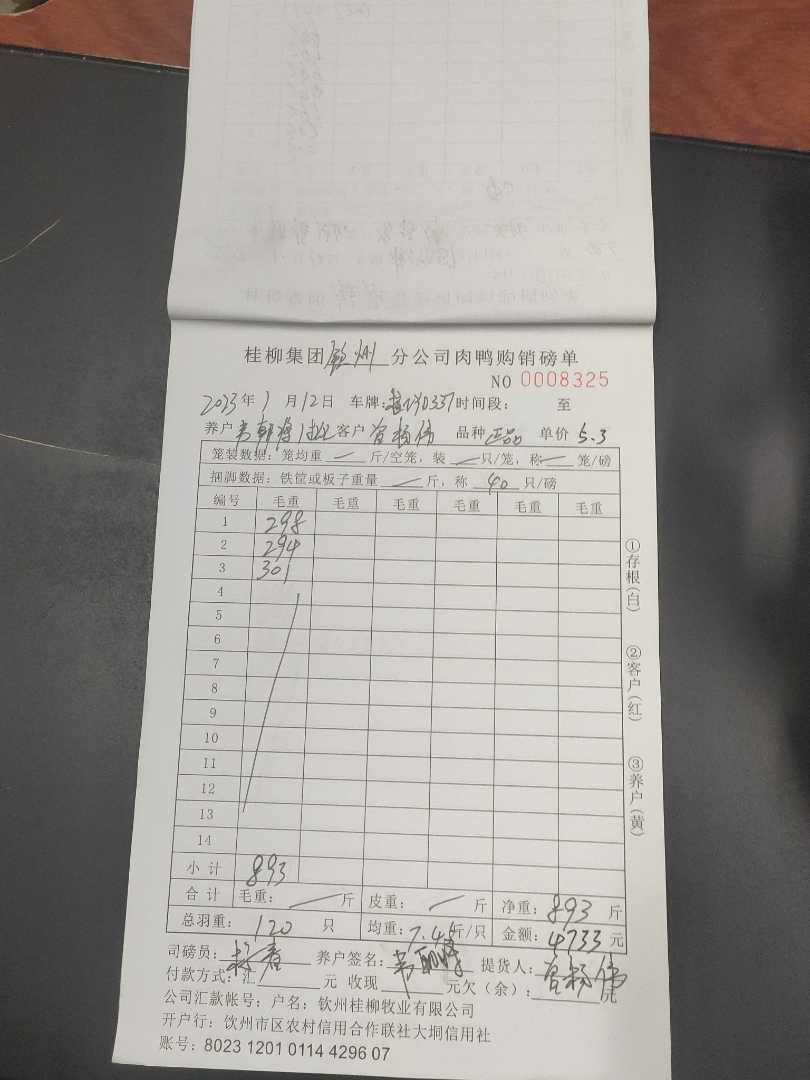 桂柳集团钦州分公司肉鸭购销磅单
NO 0008325
2023年1月12日 车牌: 时间段: 至
养户 客户曾杨伟 品种正品 单价5.3
笼装数据: 笼均重 一 斤/空笼, 装 一 只/笼, 称 一 笼/磅
捆脚数据: 铁筐或板子重量 一 斤, 称 40 只/磅
编号 毛重 毛重 毛重 毛重 毛重 毛重
1 298
2 294
3 301
4
5
6
7
8
9
10
11
12
13
14
小计 893
合计 毛重: 斤 皮重: 斤 净重: 893 斤
总羽重: 120 只 均重: 7.45斤/只 金额: 4733元
司磅员: 养户签名: 提货人: 曾杨伟
付款方式: 汇 元 收现 元欠(余): 元
公司汇款帐号: 户名: 钦州桂柳牧业有限公司
开户行: 钦州市区农村信用合作联社大垌信用社
账号: 8023 1201 0114 4296 07
①存根(白)
②客户(红)
③养户(黄)